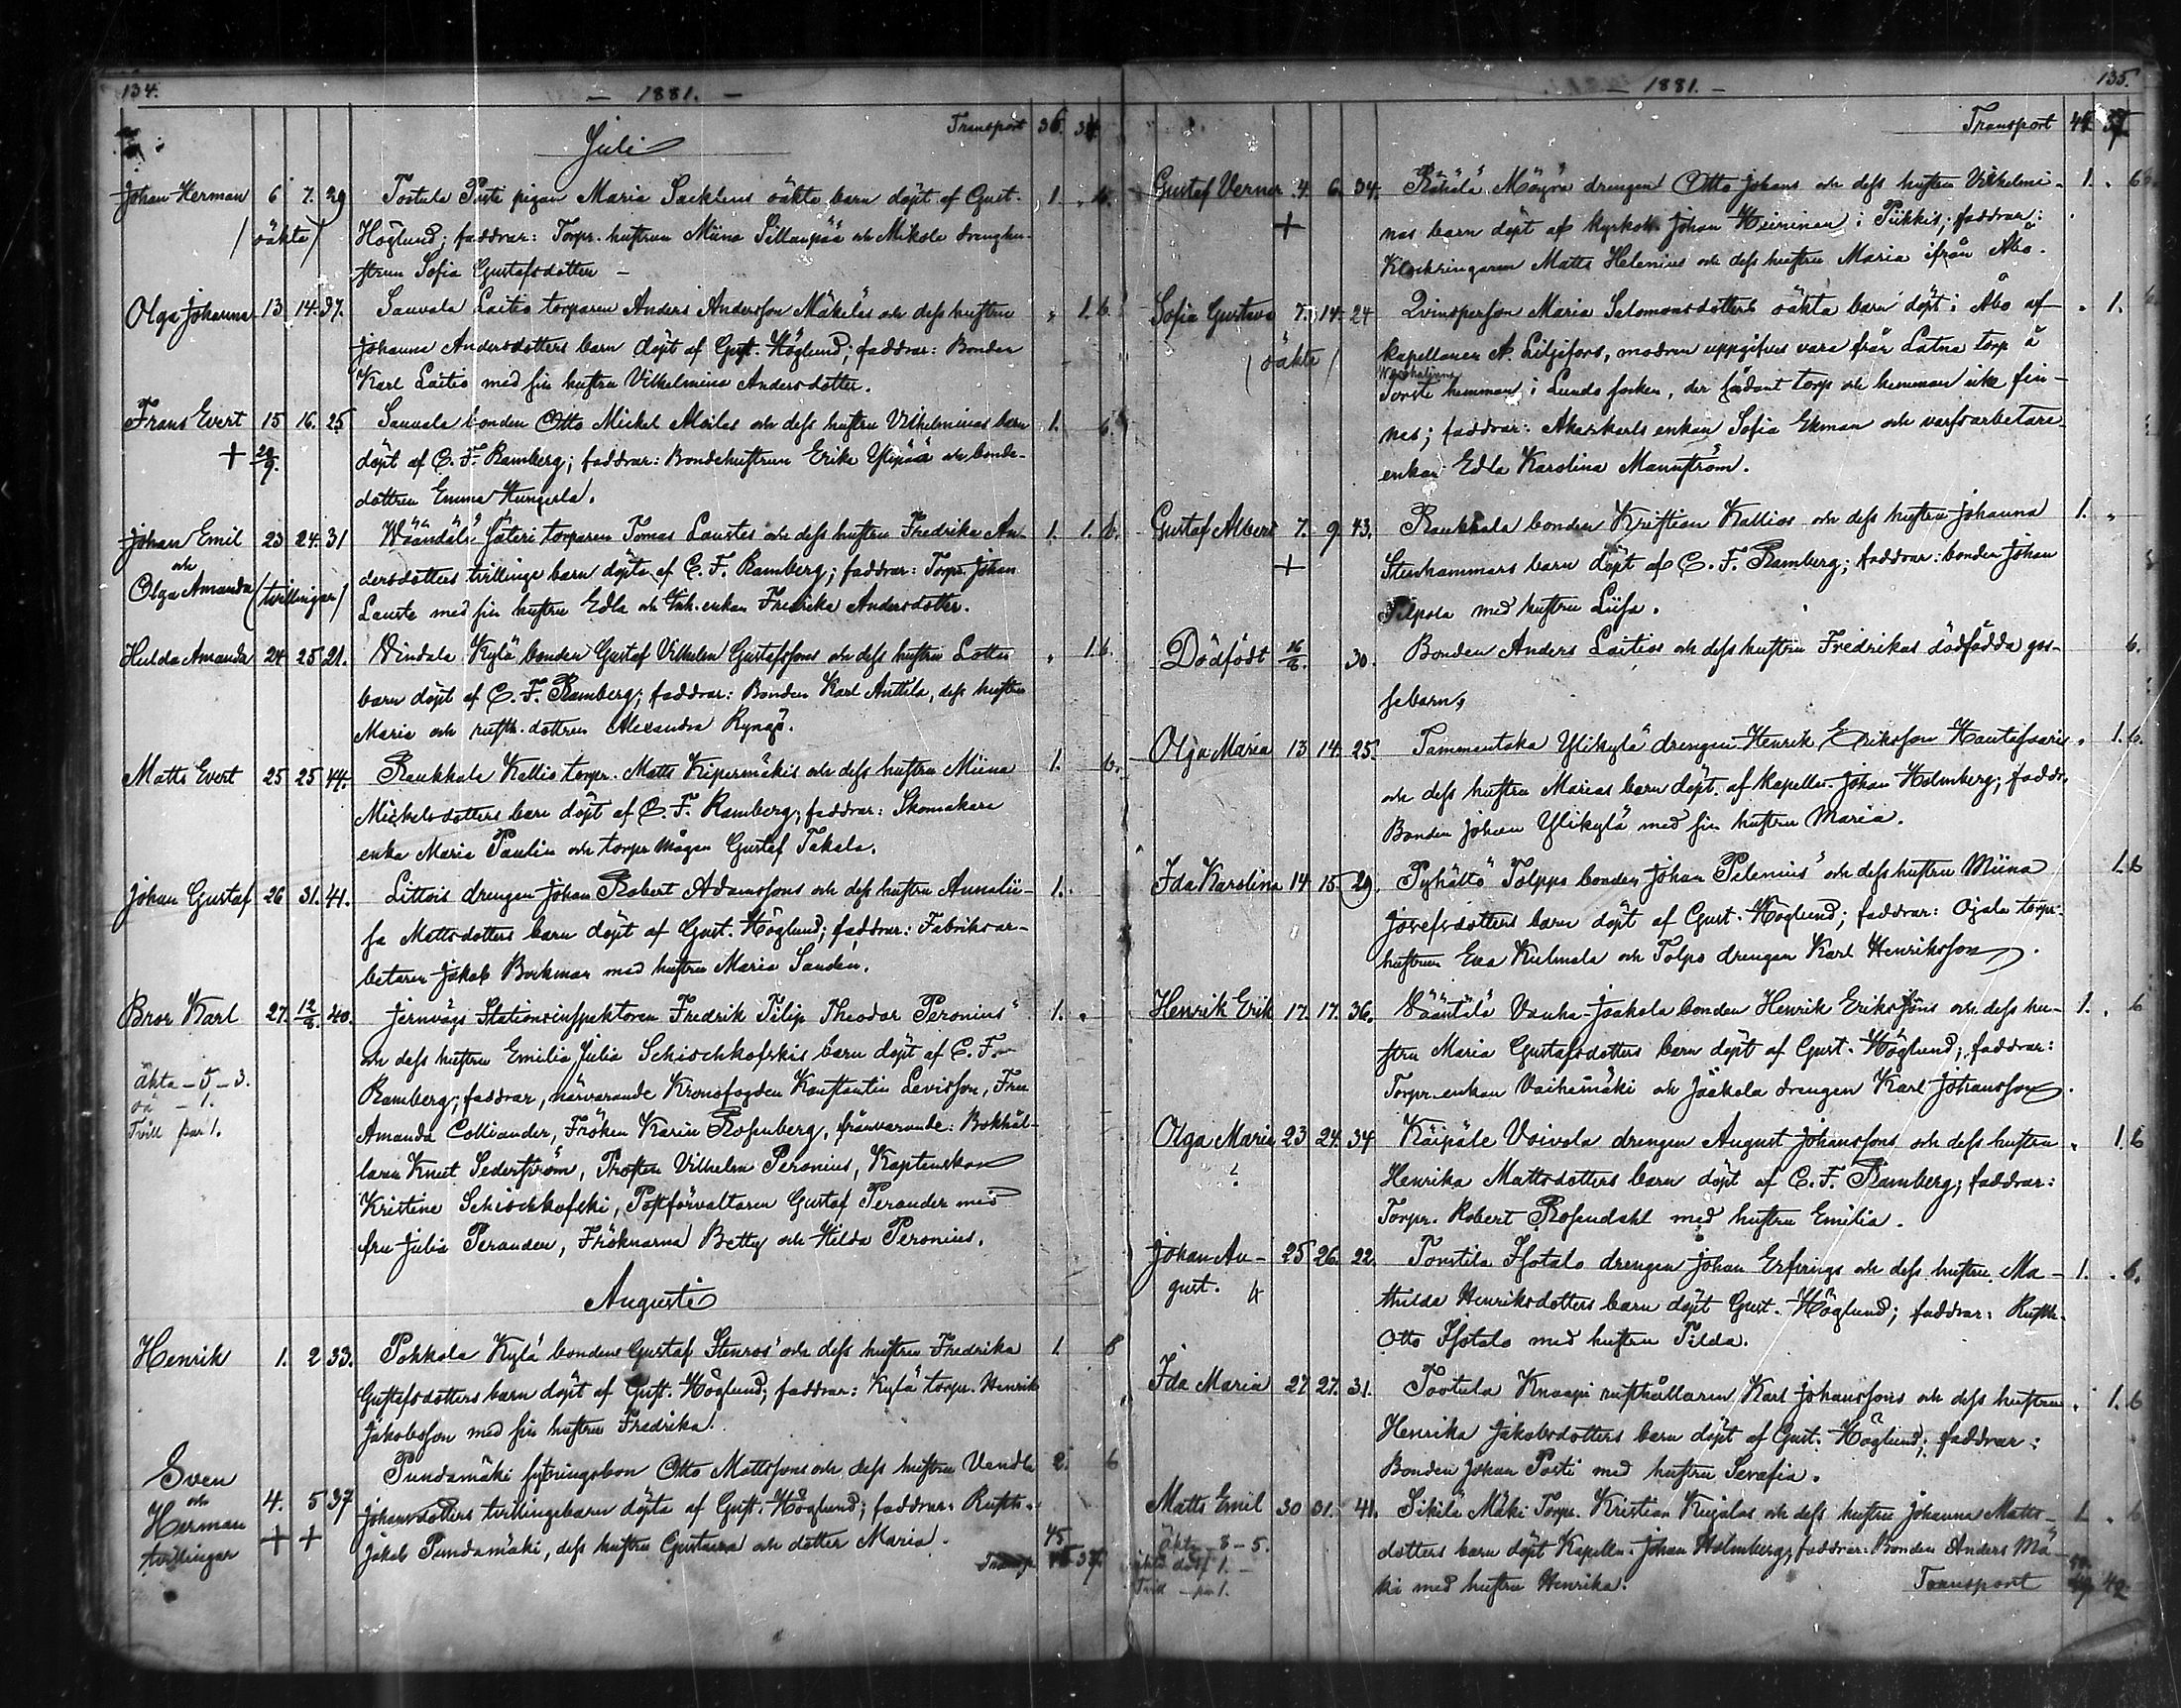 134.
- 1881. -
Transport 36. 34.
Juli
Johan Herman 6 7. 29 Tostula Posti pigan Maria Sacklens oäkta barn döpt af Gust. 1. „ 6.
(oäkta) Höglund; faddrar: Torpr. hustrun Miina Sillanpää och Mikola drenghu-
strun Sofia Gustafsdotter -
Olga Johanna 13 14. 37. Sauvala Laitio torparen Anders Andersson Mäkeläs och dess hustru „ 1. 6.
Johanna Andersdotters barn döpt af Gust. Höglund; faddrar: Bonden
Karl Laitio med sin hustru Vilhelmina Andersdotter.
Frans Evert 15 16. 25 Sauvala bonden Otto Mickel Alvilas och dess hustru Vilhelminas barn 1. 6.
+ 20/9. döpt af C. F. Ramberg; faddrar: Bondehustrun Erika Ylipää och bonde-
dottren Emma Hungerla.
Johan Emil 23 24. 31 Wäändälä Säteri torparen Tomas Laustes och dess hustru Fredrika An- 1. 1. 6.
och
Olga Amanda (tvillingar) dersdotters tvillinge barn döpta af C. F. Ramberg; faddrar: Torpr. Johan
Lauste med sin hustru Edla och Inh. enkan Fredrika Andersdotter.
Hulda Amanda 24 25 21. Vindala Kylä bonden Gustaf Vilhelm Gustafssons och dess hustru Lottas „ 1. 6.
barn döpt af C. F. Ramberg; faddrar: Bonden Karl Anttila, dess hustru
Maria och rusth. dottren Alexandra Ryngö.
Matts Evert 25 25 44. Raukkala Kallio torpr. Matts Kipermäkis och dess hustru Miina 1. 6.
Mickelsdotters barn döpt af C. F. Ramberg; faddrar: Skomakare
enka Maria Paulin och torpr mågen Gustaf Takala.
Johan Gustaf 26 31. 41. Littois drengen Johan Robert Adamssons och dess hustru Annalii- 1.
sa Mattsdotters barn döpt af Gust. Höglund; faddrar: Fabriksar-
betaren Jakob Borkman med hustru Maria Sandén.
Bror Karl 27. 12/8. 40. Jernvägs Stationsinspektoren Fredrik Filip Theodor Peronius' 1. „
och dess hustru Emilia Julia Schischkofskis barn döpt af C. F.
äkta - 5 - 3. Ramberg; faddrar, närvarande Kronofogden Konstantin Levisson, Fru
oä - 1.
Tvill par 1. Amanda Colliander, Fröken Karin Rosenberg, frånvarande: Bokhål-
laren Knut Sederström, Prosten Vilhelm Peronius, Kaptenskan
Kristine Schischkofski, Postförvaltaren Gustaf Perander med
fru Julia Perander, Fröknarna Betty och Hilda Peronius.
Augusti
Henrik 1. 2 33. Pohkola Kylä bonden Gustaf Stenros' och dess hustru Fredrika 1. 8
Gustafsdotters barn döpt af Gust. Höglund; faddrar: Kylä torpr. Henrik
Jakobsson med sin hustru Fredrika.
Sven
och
Herman
tvillingar 4. 5 37 Pundamäki sytningsbon Otto Mattssons och dess hustru Vendla 2. 6
+ + Johansdotters tvillingebarn döpta af Gust. Höglund; faddrar: Rusth.
Jakob Pundamäki, dess hustru Gustava och dotter Maria. 45
Transp. 37.
- 1881. - 135.
Transport 37.
Gustaf Verner 4. 6. 34. Räkälä Möyrä drengen Otto Johans och dess hustru Vilhelmi- 1. „ 6
+ nas barn döpt af kyrkoh. Johan Heininen i Pikkis; faddrar:
Klockringaren Matts Helenius och dess hustru Maria ifrån Åbo.
Sofia Gustava 7. 14. 24 Qvinsperson Maria Salomonsdotters oäkta barn döpt i Åbo af „ 1.
(oäkta) kapellanen A. Liljefors, modren uppgifves vara från Latna torp å
Torste hemman i Lundo socken, der sådant torp och hemman icke fin-
nes; faddrar: Akarkarls enkan Sofia Ekman och varfsarbetare-
enkan Edla Karolina Mannström.
Gustaf Albert 7. 9. 43. Raukkala bonden Kristian Kallios och dess hustru Johanna 1. „
+ Stenhammars barn döpt af C. F. Ramberg; faddrar: bonden Johan
Pilpola med hustru Liisa.
Dödfödt 16/8. 30. Bonden Anders Laitios och dess hustru Fredrikas dödfödda gos- 6.
sebarn.
Olga Maria 13 14. 25. Tammentaka Ylikylä drengen Henrik Eriksson Hautasaaris „ 1. 6.
och dess hustru Marias barn döpt af Kapelln. Johan Holmberg; faddr.
Bonden Johan Ylikylä med sin hustru Maria.
Ida Karolina 14 15. 29. Pyhältö Tolppo bonden Johan Pelenius' och dess hustru Miina 1. 6
Josefsdotters barn döpt af Gust. Höglund; faddrar: Ojala torpr-
hustrun Eva Kulmala och Tolpo drengen Karl Henriksson.
Henrik Erik 17. 17. 36. Vääntälä Vanha-Jaakola bonden Henrik Erikssons och dess hu- 1. „ 6
stru Maria Gustafsdotters barn döpt af Gust. Höglund; faddrar:
Torpr. enkan Vaihemäki och Jaakola drengen Karl Johansson.
Olga Maria 23 24. 34 Käipälä Voivola drengen August Johanssons och dess hustru „ 1. 6
Henrika Mattsdotters barn döpt af C. F. Ramberg; faddrar:
Torpr. Robert Rosendahl med hustru Emilia.
Johan Au- 25 26. 22. Torstila Isotalo drengen Johan Erfvings och dess hustru Ma- 1. „ 6.
gust. thilda Henriksdotters barn döpt Gust. Höglund; faddrar: Rusth.
Otto Isotalo med hustru Tilda.
Ida Maria 27 27. 31. Tostula Knaapi rusthållaren Karl Johanssons och dess hustru „ 1. 6
Henrika Jakobsdotters barn döpt af Gust. Höglund; faddrar:
Bonden Johan Posti med hustru Serafia.
Matts Emil 30 31. 41. Sikilä Mäki Torpr. Kristian Kujalas och dess hustru Johanna Matts- 1. „ 6
Äkta - 8 - 5. dotters barn döpt Kapelln. Johan Holmberg; faddrar: Bonden Anders Mä-
äkta dödf 1. -
Tvill - par 1. ki med hustru Henrika. Transport 42.